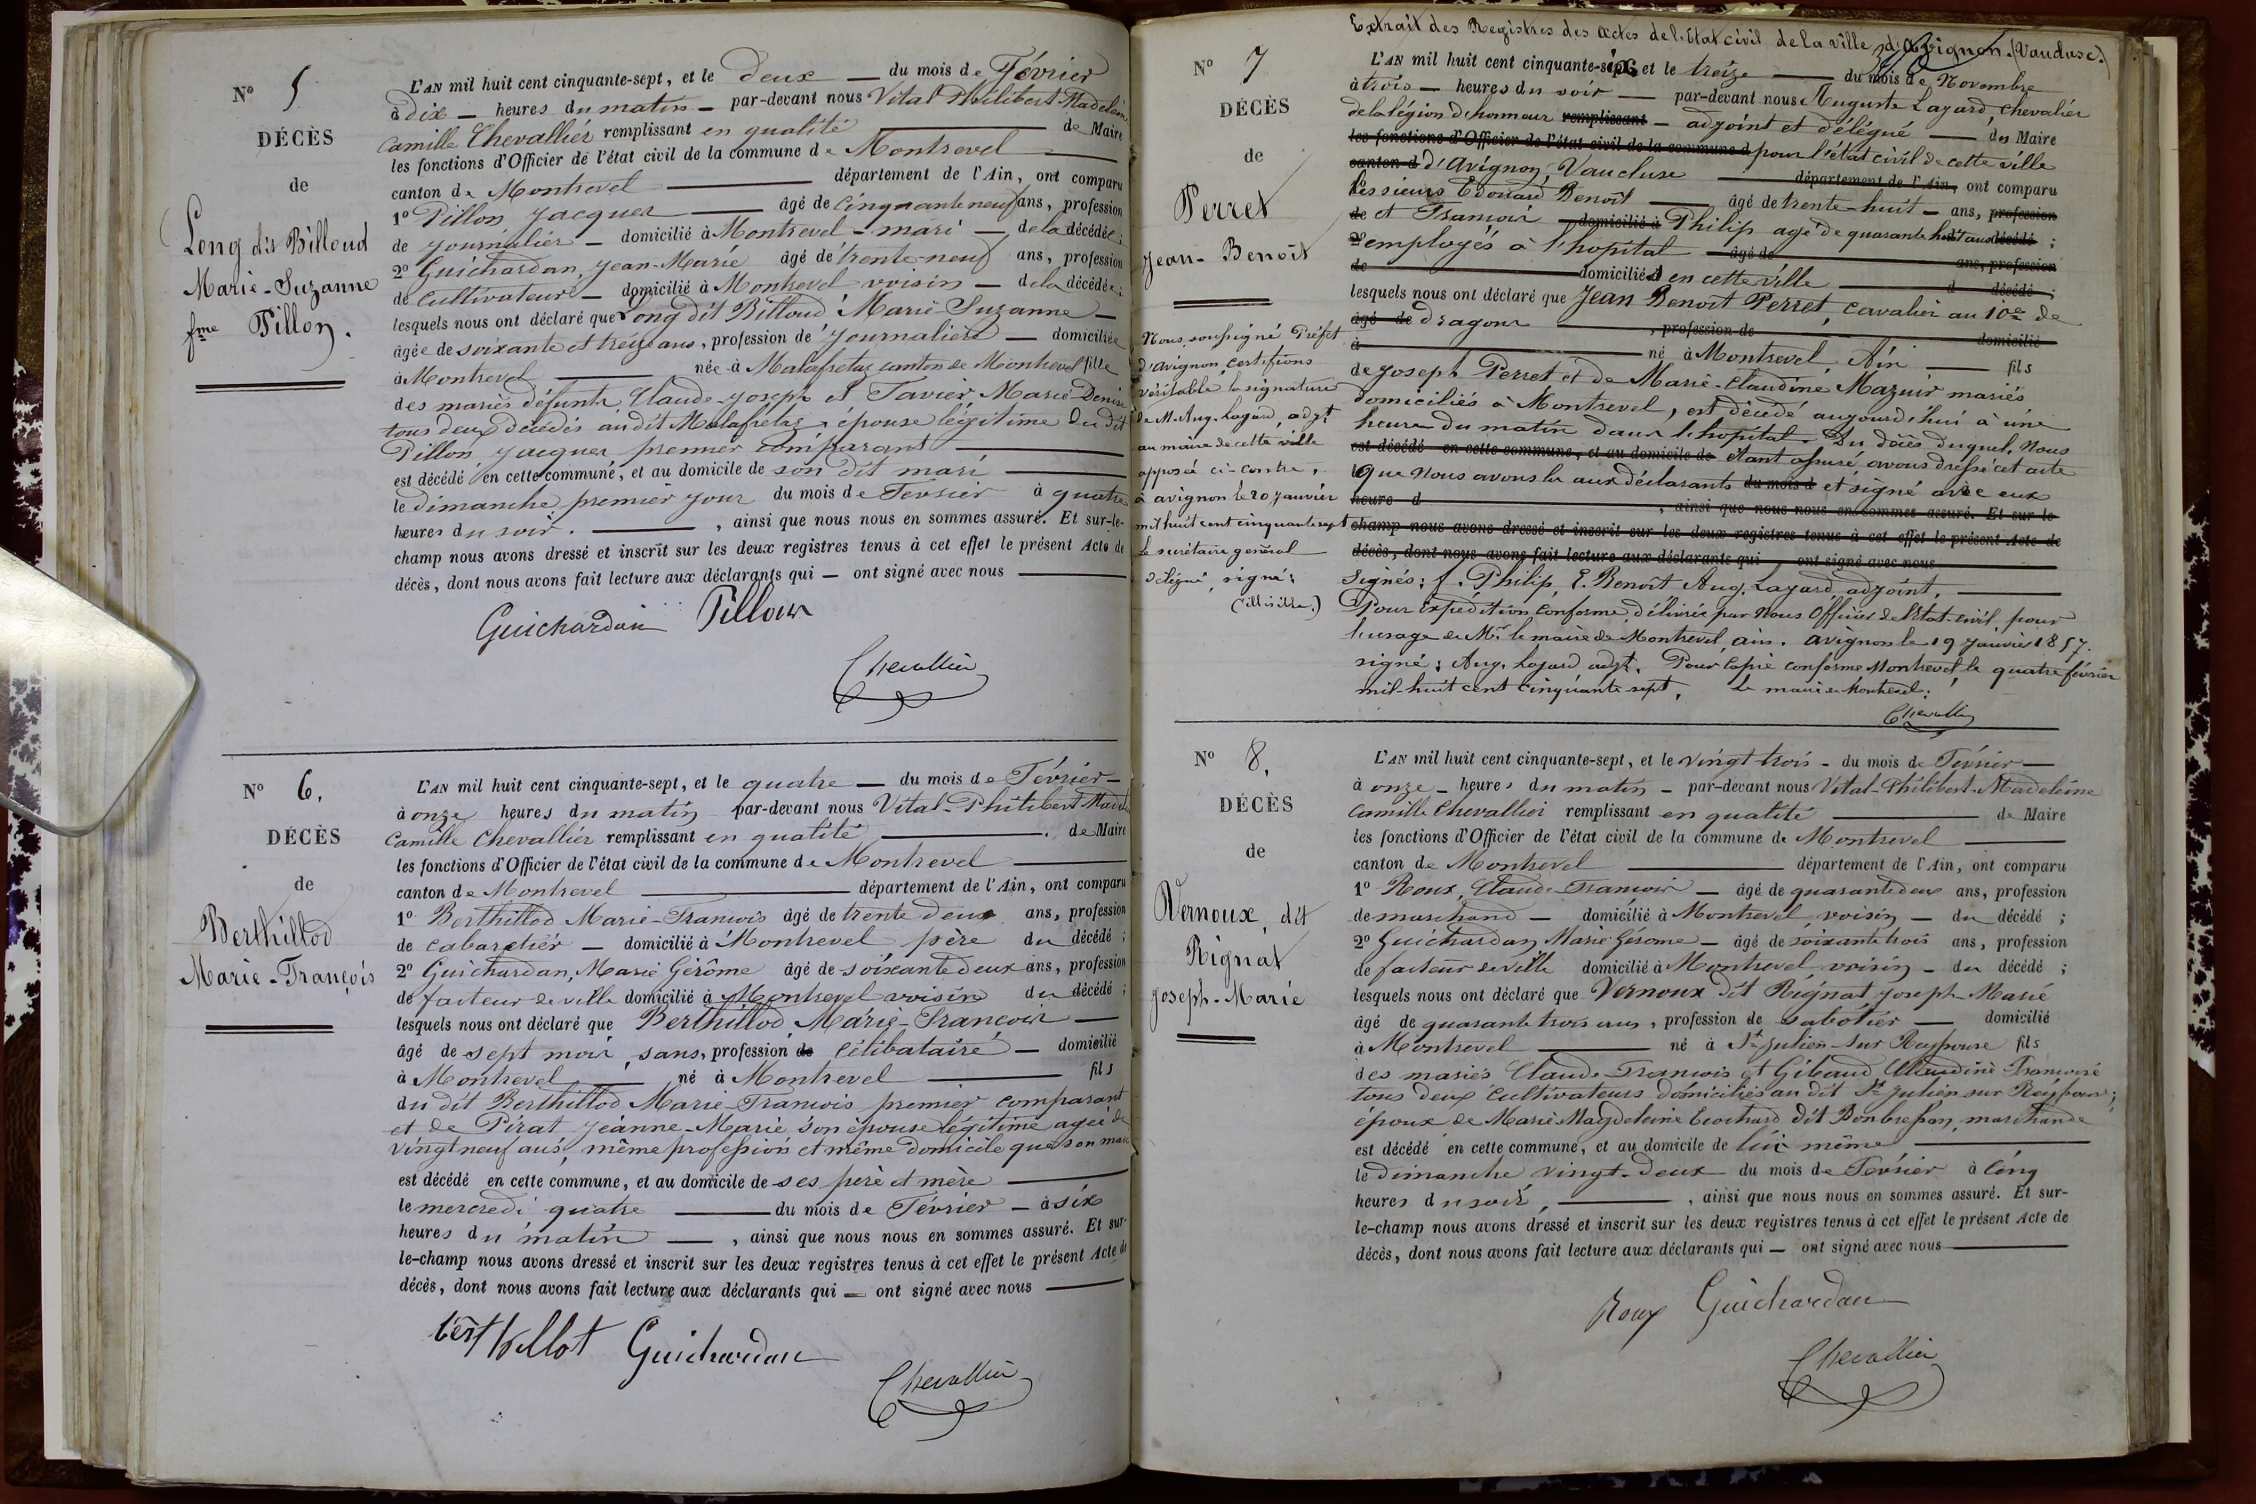 N° 5
DÉCÈS
de
Long dit Billoud
Marie-Suzanne
fme Pillon.
L'AN mil huit cent cinquante-sept, et le deux — du mois de Février
à dix — heures du matin — par-devant nous Vital Philibert Madeleine
Camille Chevallier remplissant en qualité — de Maire
les fonctions d'Officier de l'état civil de la commune de Montrevel —
canton de Montrevel — département de l'Ain, ont comparu
1° Pillon Jacques — âgé de cinquante neuf ans, profession
de journalier — domicilié à Montrevel — mari — de la décédée;
2° Guichardan, Jean-Marie âgé de trente-neuf ans, profession
de cultivateur — domicilié à Montrevel voisin — de la décédée;
lesquels nous ont déclaré que Long dit Billoud Marie Suzanne —
âgée de soixante et treize ans, profession de journalière — domiciliée
à Montrevel — née à Malafretaz canton de Montrevel fille
des mariés défunts Claude-Joseph et Tavier Marie Denise
tous deux décédés au dit Malafretaz, épouse légitime du dit
Pillon Jacques premier comparant —
est décédé en cette commune, et au domicile de son dit mari —
le dimanche premier jour du mois de Février à quatre
heures du soir. — , ainsi que nous nous en sommes assuré. Et sur-le-
champ nous avons dressé et inscrit sur les deux registres tenus à cet effet le présent Acte de
décès, dont nous avons fait lecture aux déclarants qui — ont signé avec nous —
Guichardan Pillon
Chevallier
N° 6.
DÉCÈS
de
Berthillod
Marie-François
L'AN mil huit cent cinquante-sept, et le quatre — du mois de Février —
à onze heures du matin par-devant nous Vital-Philibert Made
Camille Chevallier remplissant en qualité — . de Maire
les fonctions d'Officier de l'état civil de la commune de Montrevel —
canton de Montrevel — département de l'Ain, ont comparu
1° Berthillod Marie-François âgé de trente deux ans, profession
de cabaretier — domicilié à Montrevel père du décédé;
2° Guichardan, Marie Gérôme âgé de soixante deux ans, profession
de facteur de ville domicilié à Montrevel voisin du décédé;
lesquels nous ont déclaré que Berthillod Marie-François —
âgé de sept mois, sans, profession de célibataire — domicilié
à Montrevel — né à Montrevel — fils
du dit Berthillod Marie-François premier comparant
et de Pirat Jeanne-Marie son épouse légitime agée de
vingt neuf ans, même profession et même domicile que son mari
est décédé en cette commune, et au domicile de ses père et mère —
le mercredi quatre — du mois de Février — à six
heures du matin — , ainsi que nous nous en sommes assuré. Et sur-
le-champ nous avons dressé et inscrit sur les deux registres tenus à cet effet le présent Acte de
décès, dont nous avons fait lecture aux déclarants qui — ont signé avec nous —
berthillot Guichardan
Chevallier
Extrait des Registres des actes de l'Etat civil de la ville d'Avignon. (Vaucluse.)
N° 7
DÉCÈS
de
Perret
Jean-Benoît
Nous soussigné Préfet
d'avignon, certifions
véritable la signature
de M. Aug. Layard, adjt
au maire de cette ville
apposée ci-contre,
à avignon le 20 janvier
mil huit cent cinquante sept
Le secrétaire général
délégué, signé:
(illisible.)
L'AN mil huit cent cinquante-six et le treize — du mois de Novembre
à trois — heures du soir — par-devant nous Auguste Layard, chevalier
de la légion d'honneur remplissant — adjoint et délégué — du Maire
les fonctions d'Officier de l'état civil de la commune d pour l'état civil de cette ville
canton d d'Avignon, Vaucluse — département de l'Ain, ont comparu
les sieurs Edouard Benoît — âgé de trente-huit — ans, profession
de et François domicilié à Philip agé de quarante huit ans décédé;
2° employés à l'hopital — âgé de ans, profession
de domiciliés en cette ville — d décédé;
lesquels nous ont déclaré que Jean Benoit Perret, cavalier au 10e de
âgé de dragons — , profession de domicilié
à — né à Montrevel, Ain — fils
de Joseph Perret et de Marie-Claudine Mazuir mariés
domiciliés à Montrevel, est décédé aujourd'hui à une
heure du matin dans l'hopital. Du décès duquel, Nous
est décédé en cette commune, et au domicile de étant assuré avons dressé cet acte
le que nous avons lu aux déclarants du mois d et signé avec eux
heure d , ainsi que nous nous en sommes assuré. Et sur-le-
champ nous avons dressé et inscrit sur les deux registres tenus à cet effet le présent Acte de
décès, dont nous avons fait lecture aux déclarants qui ont signé avec nous
Signés: f. Philip, E. Benoît Aug. Layard, adjoint. —
Pour Expédition conforme, délivrée par Nous Officier de l'état-civil, pour
l'usage de Mr le maire de Montrevel, ain. avignon le 19 janvier 1857.
signé: Aug. Layard adjt. Pour Copie conforme Montrevel, le quatre février
mil huit cent cinquante sept. Le maire de Montrevel.
Chevallier
N° 8.
DÉCÈS
de
Vernoux, dit
Rignat
Joseph-Marie
L'AN mil huit cent cinquante-sept, et le vingt trois — du mois de Février —
à onze — heures du matin — par-devant nous Vital-Philibert-Madeleine
Camille Chevallier remplissant en qualité — de Maire
les fonctions d'Officier de l'état civil de la commune de Montrevel —
canton de Montrevel — département de l'Ain, ont comparu
1° Roux, Claude-François — âgé de quarante deux ans, profession
de marchand — domicilié à Montrevel voisin — du décédé;
2° Guichardan Marie Gérome — âgé de soixante trois ans, profession
de facteur de ville domicilié à Montrevel voisin — du décédé;
lesquels nous ont déclaré que Vernoux dit Rignat Joseph-Marie
âgé de quarante trois ans, profession de sabotier — domicilié
à Montrevel — né à St Julien-sur Reyssouse fils
des mariés Claude-François et Gibaud Claudine Françoise
tous deux cultivateurs domiciliés au dit St Julien sur Reyssouse;
époux de Marie Magdeleine Ecochard dit Bonbressan, marchande
est décédé en cette commune, et au domicile de lui même —
le dimanche vingt-deux du mois de Février à cinq
heures du soir, — , ainsi que nous nous en sommes assuré. Et sur-
le-champ nous avons dressé et inscrit sur les deux registres tenus à cet effet le présent Acte de
décès, dont nous avons fait lecture aux déclarants qui — ont signé avec nous —
Roux Guichardan
Chevallier